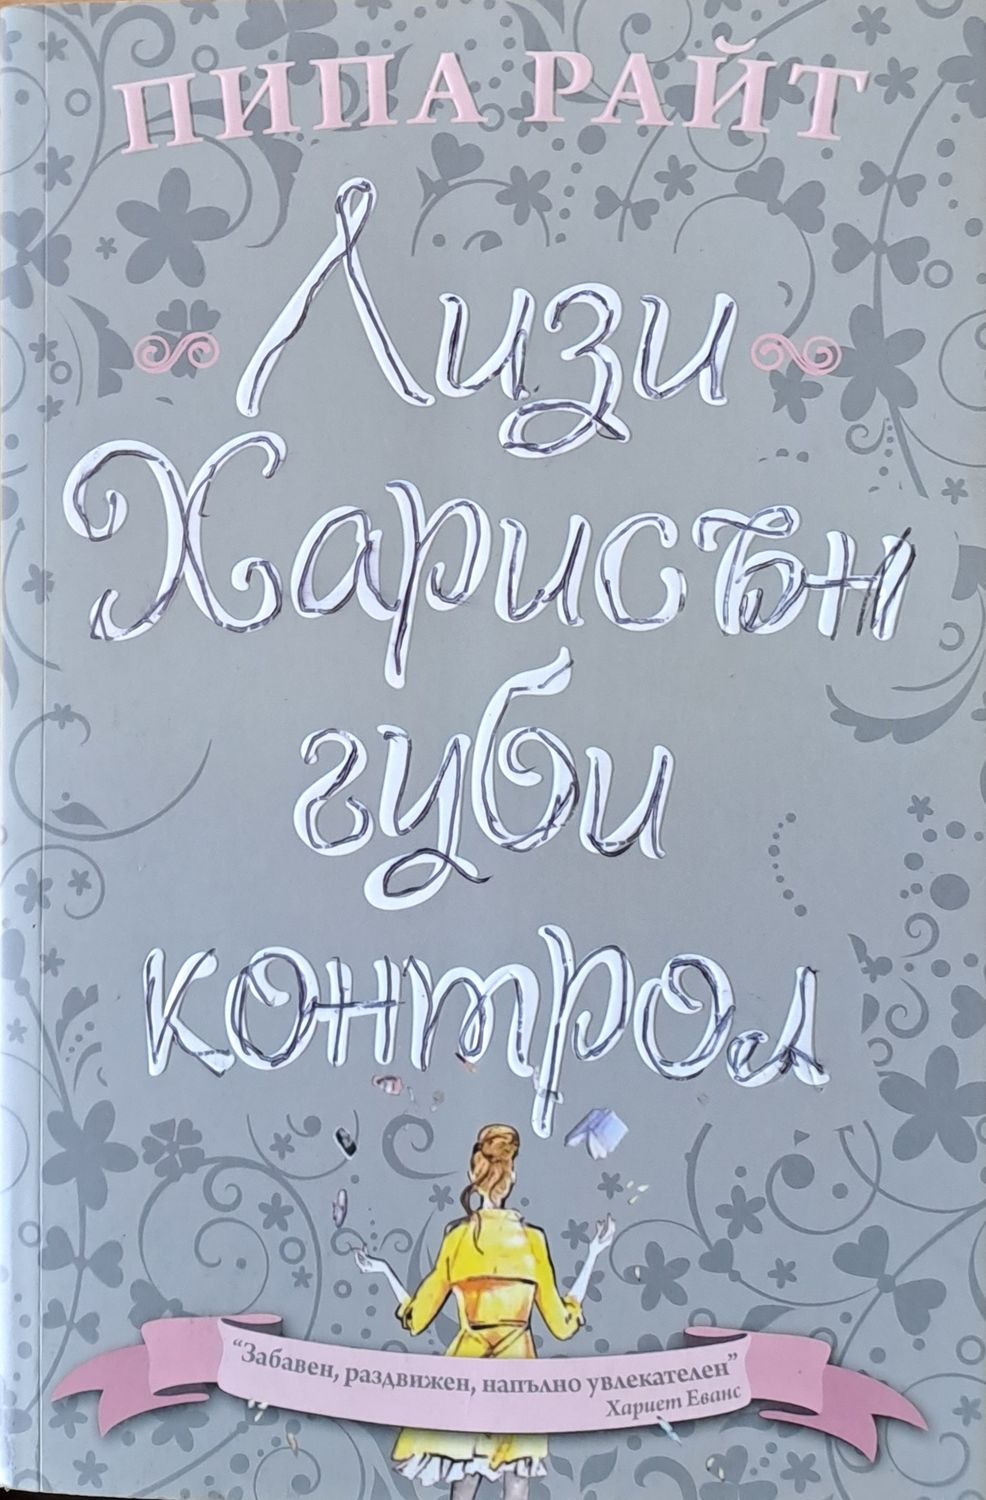 ПИПА РАЙТ
Лизи
Харисън
губи
контрол
“Забавен, раздвижен, напълно увлекателен”
Хариет Еванс